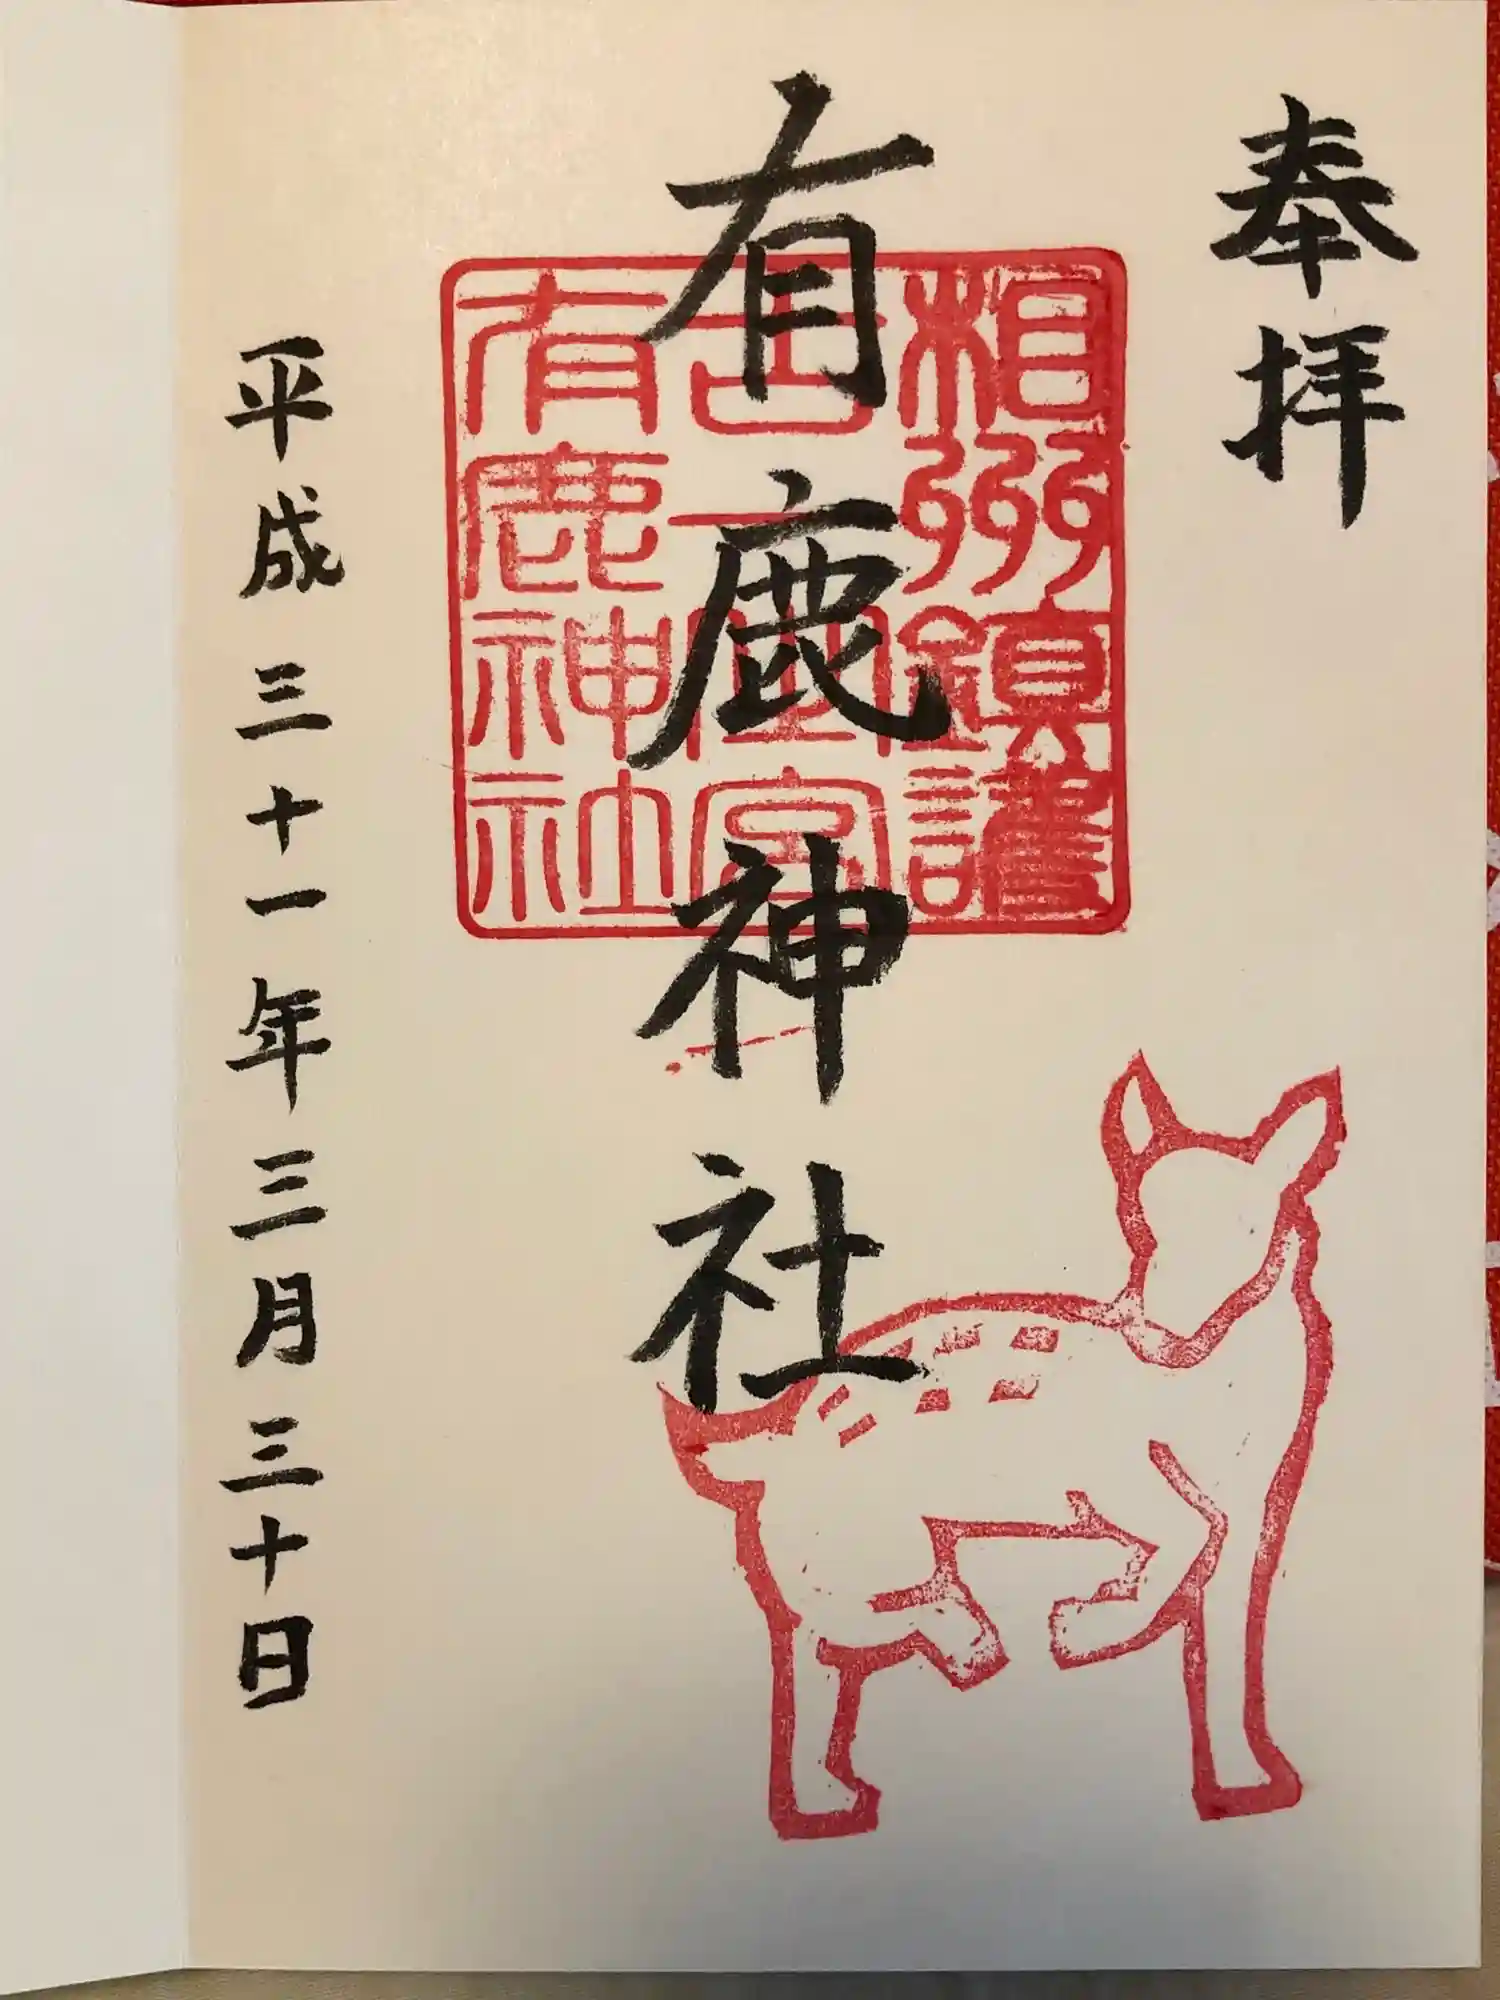 奉拝
有鹿神社
相州鎮護
五古一之宮
有鹿神社
平成三十一年三月三十日